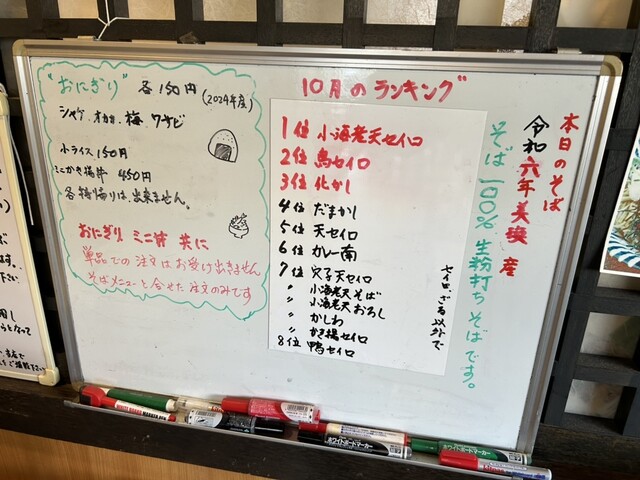 "おにぎり" 各150円 (2024年度)
シャケ、オカカ、梅、ワサビ
小ライス 150円
ミニかき揚丼 450円
各持帰りは、出来ません。
おにぎり ミニ丼 共に
単品での注文はお受け出きません
そばメニューと合せた注文のみです
10月のランキング
1位 小海老天セイロ
2位 鳥セイロ
3位 化かし
4位 だまかし
5位 天セイロ
6位 カレー南
7位 穴子天セイロ
〃 小海老天そば
〃 小海老天おろし
〃 かしわ
〃 かき揚セイロ
8位 鴨セイロ
セイロ、ざる以外で
本日のそば
令和六年美瑛産
そば一00%生粉打ちそばです。
ホワイトボードマーカー